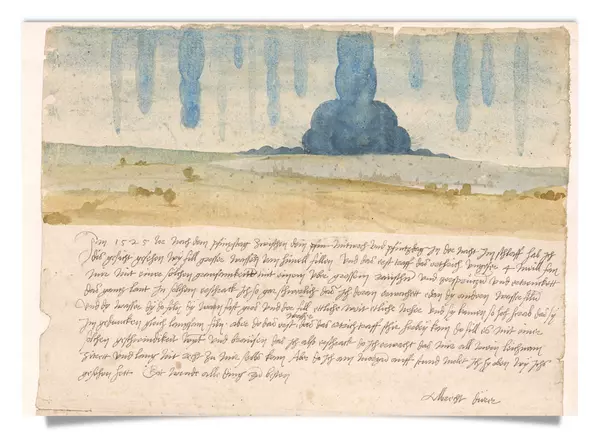 Im 1525 Jor nach dem pfinxstag zwischen dem Mitwoch und pfintzdag in der nacht im schlaff hab ich
dis gesicht gesehen wy fill grosser wassern vom himell fillen Und das erst traff das erthrich ungefer 4 meill fan
mir mit einer solchen grausamkeitt mit einem uber grossem raüschn und zersprützen und ertrenckett
das gannt lant In solchem erschrack ich so gar schwerlich das ich doran erwachett edan dy andern wasser filn
Und dy wasser dy do filn dy warn fast gros und der fill ettliche weit etliche neher und sy kamen so hoch herab das sy
im gedancken gleich langsam filn aber do das erst wasser das das ertrich traff schir herbey kam do fill es mit einer
solchen geschwindikeit wynt und braüsen das ich also erschrack do ich erwacht das mir all mein leichnam
zitrett und lang nit recht zu mir selbs kam Aber do ich am morgen auff stund molet ich hy oben wy ichs
gesehen hett Got wende alle ding zu besten
Albrecht dürer